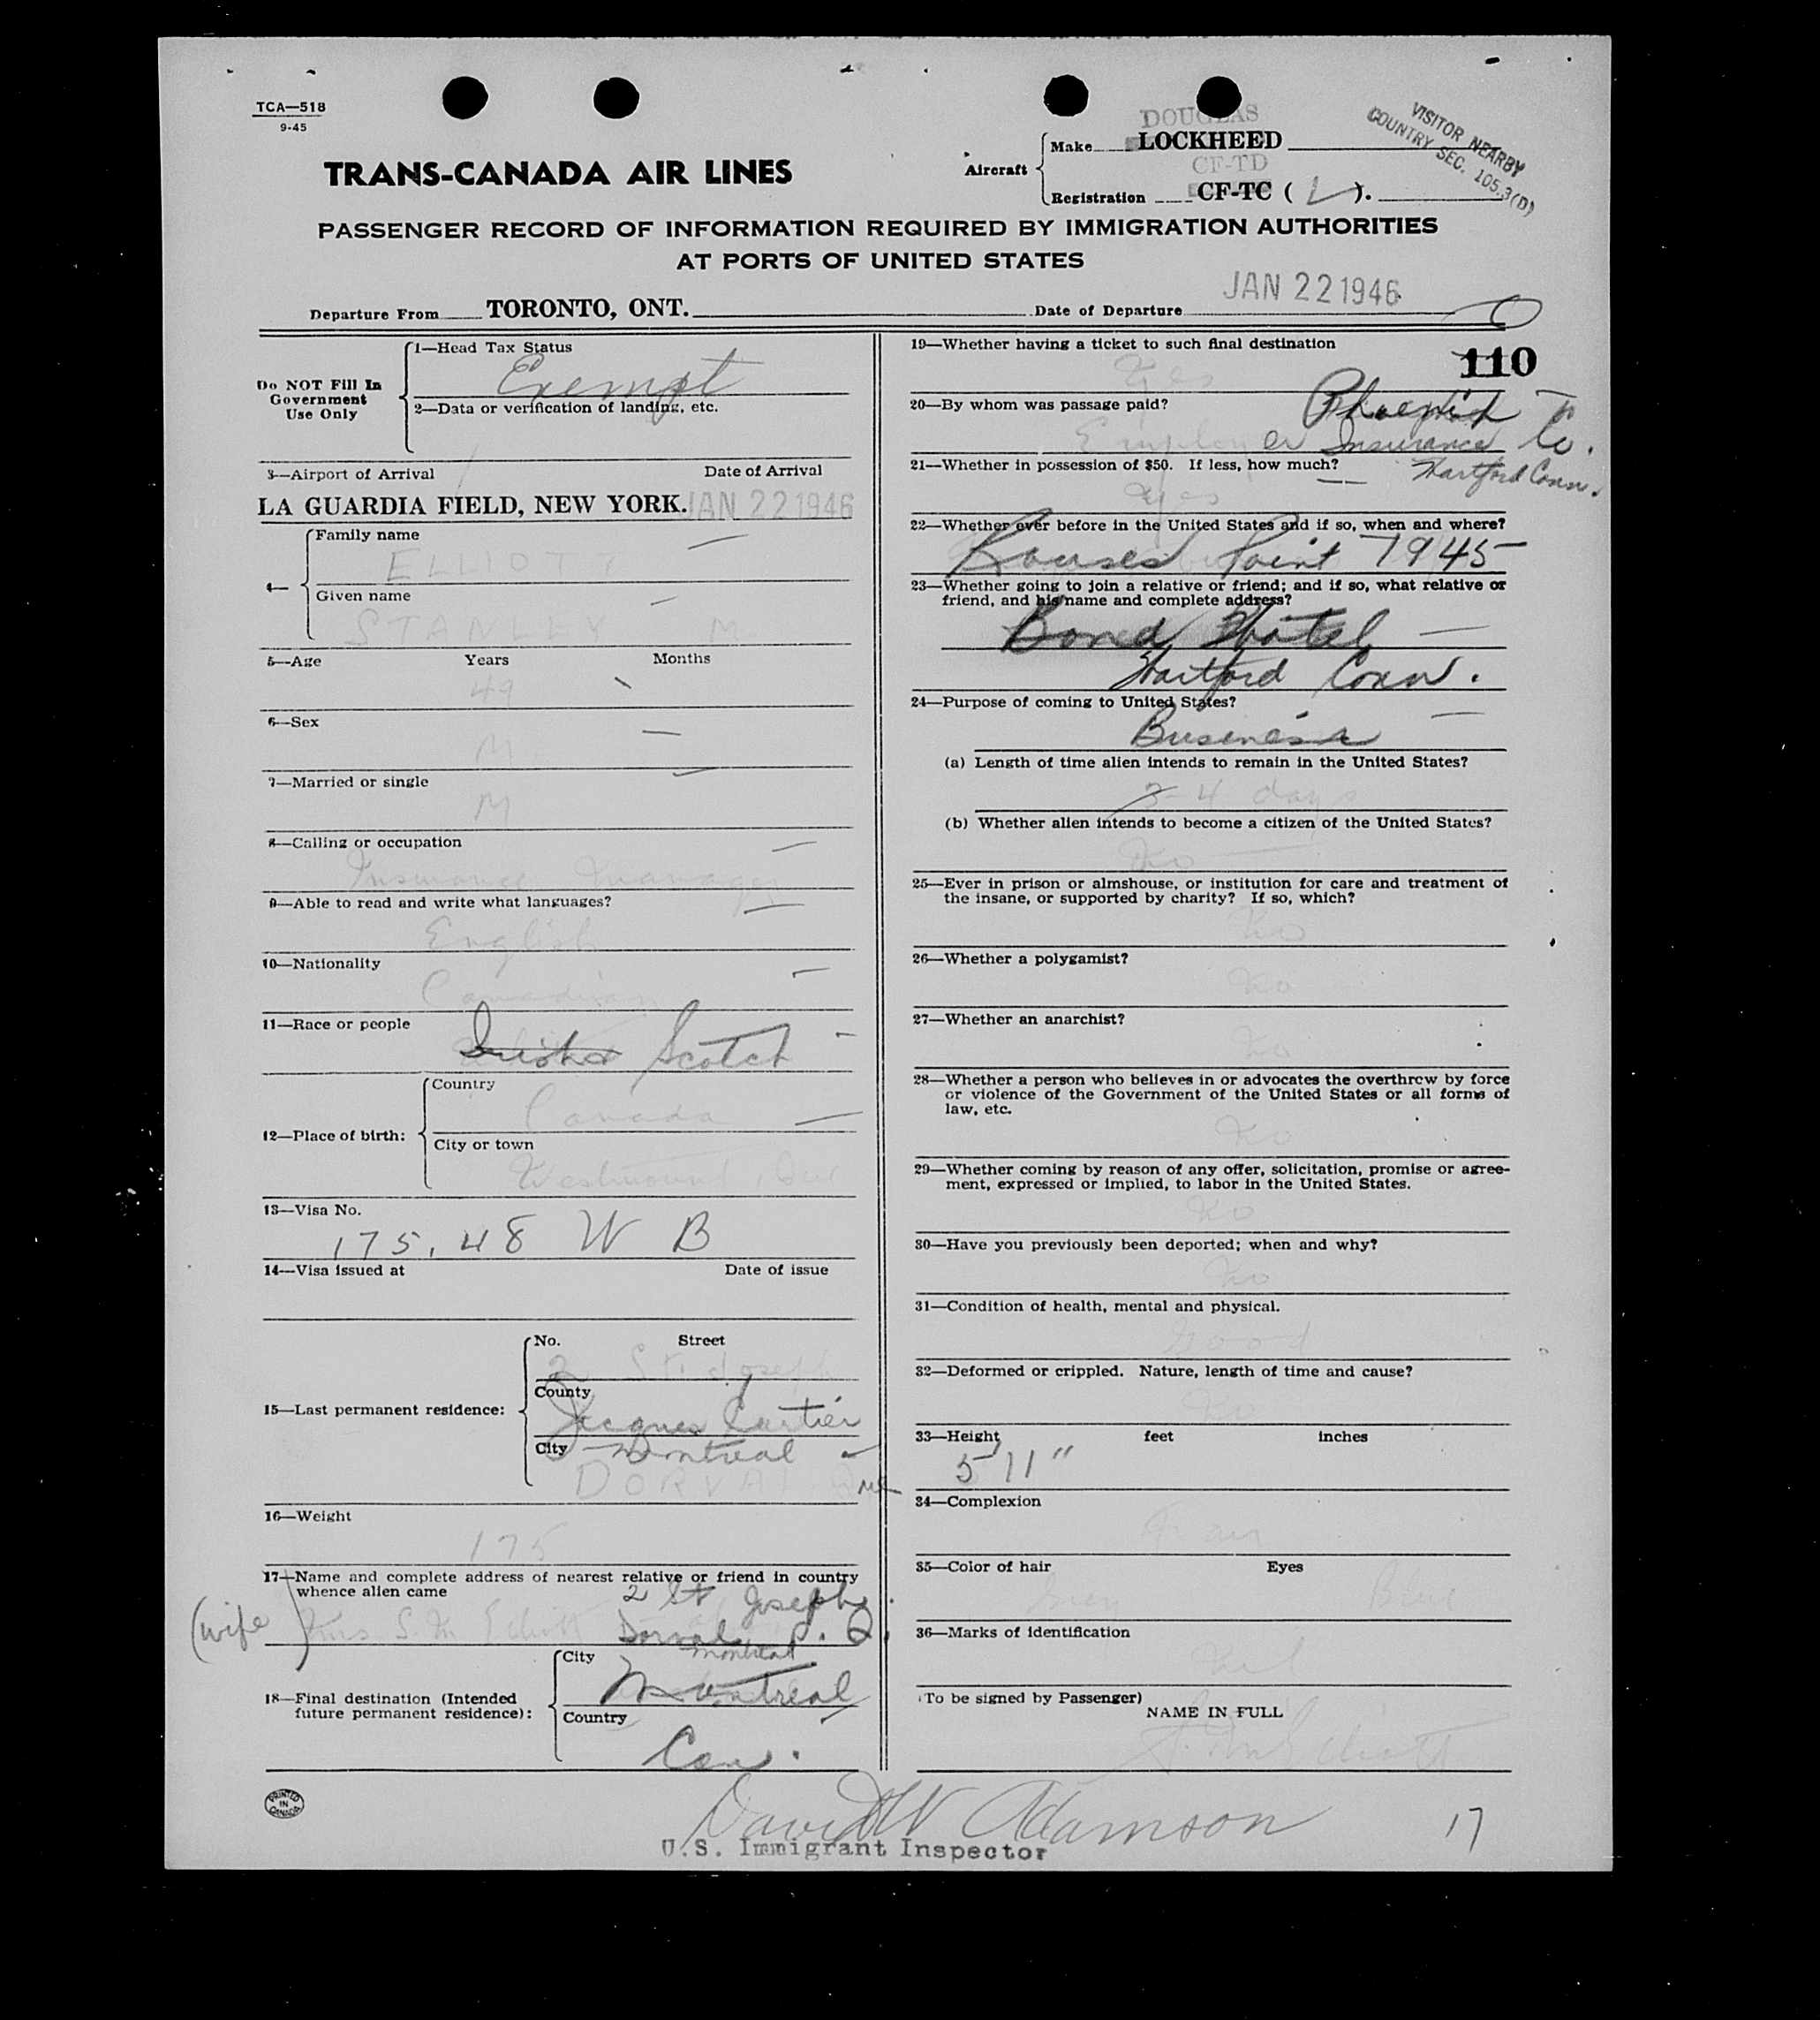 TCA—518
9-45
DOUGLAS
Aircraft
Make LOCKHEED
CF-TD
Registration CF-TC ( L ).
VISITOR NEARBY
COUNTRY SEC. 105.3(D)
TRANS-CANADA AIR LINES
PASSENGER RECORD OF INFORMATION REQUIRED BY IMMIGRATION AUTHORITIES
AT PORTS OF UNITED STATES
Departure From TORONTO, ONT. Date of Departure JAN 22 1946
Do NOT Fill In
Government
Use Only
1—Head Tax Status
Exempt
2—Data or verification of landing, etc.
3—Airport of Arrival Date of Arrival
LA GUARDIA FIELD, NEW YORK. JAN 22 1946
4—
Family name
ELLIOTT
Given name
STANLEY M
5—Age Years Months
49
6—Sex
M
7—Married or single
M
8—Calling or occupation
Insurance Manager
9—Able to read and write what languages?
English
10—Nationality
Canadian
11—Race or people
Scotch
12—Place of birth:
Country
Canada
City or town
Westmount, Que
13—Visa No.
175.48 W B
14—Visa issued at Date of issue
15—Last permanent residence:
No. Street
2 St. Joseph
County
Jacques Cartier
City Montreal
DORVAL Que
16—Weight
175
17—Name and complete address of nearest relative or friend in country
whence alien came
2 St Joseph
(wife) Mrs S. M Elliott Dorval P. Q.
Montreal
18—Final destination (Intended
future permanent residence):
City
Montreal
Country
Can.
PRINTED
IN
CANADA
19—Whether having a ticket to such final destination
110
Yes
20—By whom was passage paid?
Phoenix
Employer Insurance Co.
Hartford Conn.
21—Whether in possession of $50. If less, how much?
Yes
22—Whether ever before in the United States and if so, when and where?
Rouses Point 1945
23—Whether going to join a relative or friend; and if so, what relative or
friend, and his name and complete address?
Bond Hotel
Hartford Conn.
24—Purpose of coming to United States?
Business
(a) Length of time alien intends to remain in the United States?
3-4 days
(b) Whether alien intends to become a citizen of the United States?
No
25—Ever in prison or almshouse, or institution for care and treatment of
the insane, or supported by charity? If so, which?
No
26—Whether a polygamist?
No
27—Whether an anarchist?
No
28—Whether a person who believes in or advocates the overthrow by force
or violence of the Government of the United States or all forms of
law, etc.
No
29—Whether coming by reason of any offer, solicitation, promise or agree-
ment, expressed or implied, to labor in the United States.
No
30—Have you previously been deported; when and why?
No
31—Condition of health, mental and physical.
Good
32—Deformed or crippled. Nature, length of time and cause?
No
33—Height feet inches
5' 11"
34—Complexion
35—Color of hair Eyes
Grey Blue
36—Marks of identification
Nil
(To be signed by Passenger)
NAME IN FULL
S. M. Elliott
David W Adamson
U.S. Immigrant Inspector
17